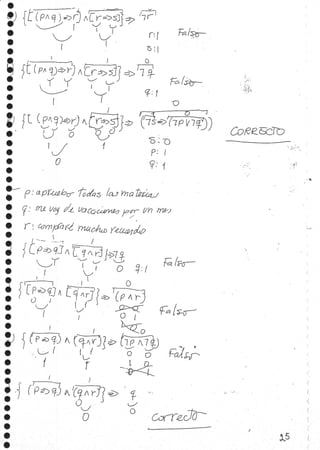 {[(p∧q)⇒r]∧[r⇒s]}⇒ ¬r
r:1
Falso
s:1
{[(p∧q)⇒r]∧[r⇒s]}⇒ ¬q
Falso
q:1
0
{[(p∧q)⇒r]∧[r⇒s]}⇒(¬s⇒(¬p∨¬q))
CORRECTO
s:0
0 1
p:1
0
q:1
p: apruebo todas las materias
q: me voy de vacaciones por un mes
r: compraré mucho recuerdo
{[p⇒q]∧[q∧r]}⇒¬q
0 q:1
Falso
{[p⇒q]∧[q∧r]}⇒(p∧r)
Falso
{(p⇒q)∧(q∧r)}⇒(¬p∧¬q)
Falso
{(p⇒q)∧(q∧r)}⇒ q
0
0
0
correcto
25